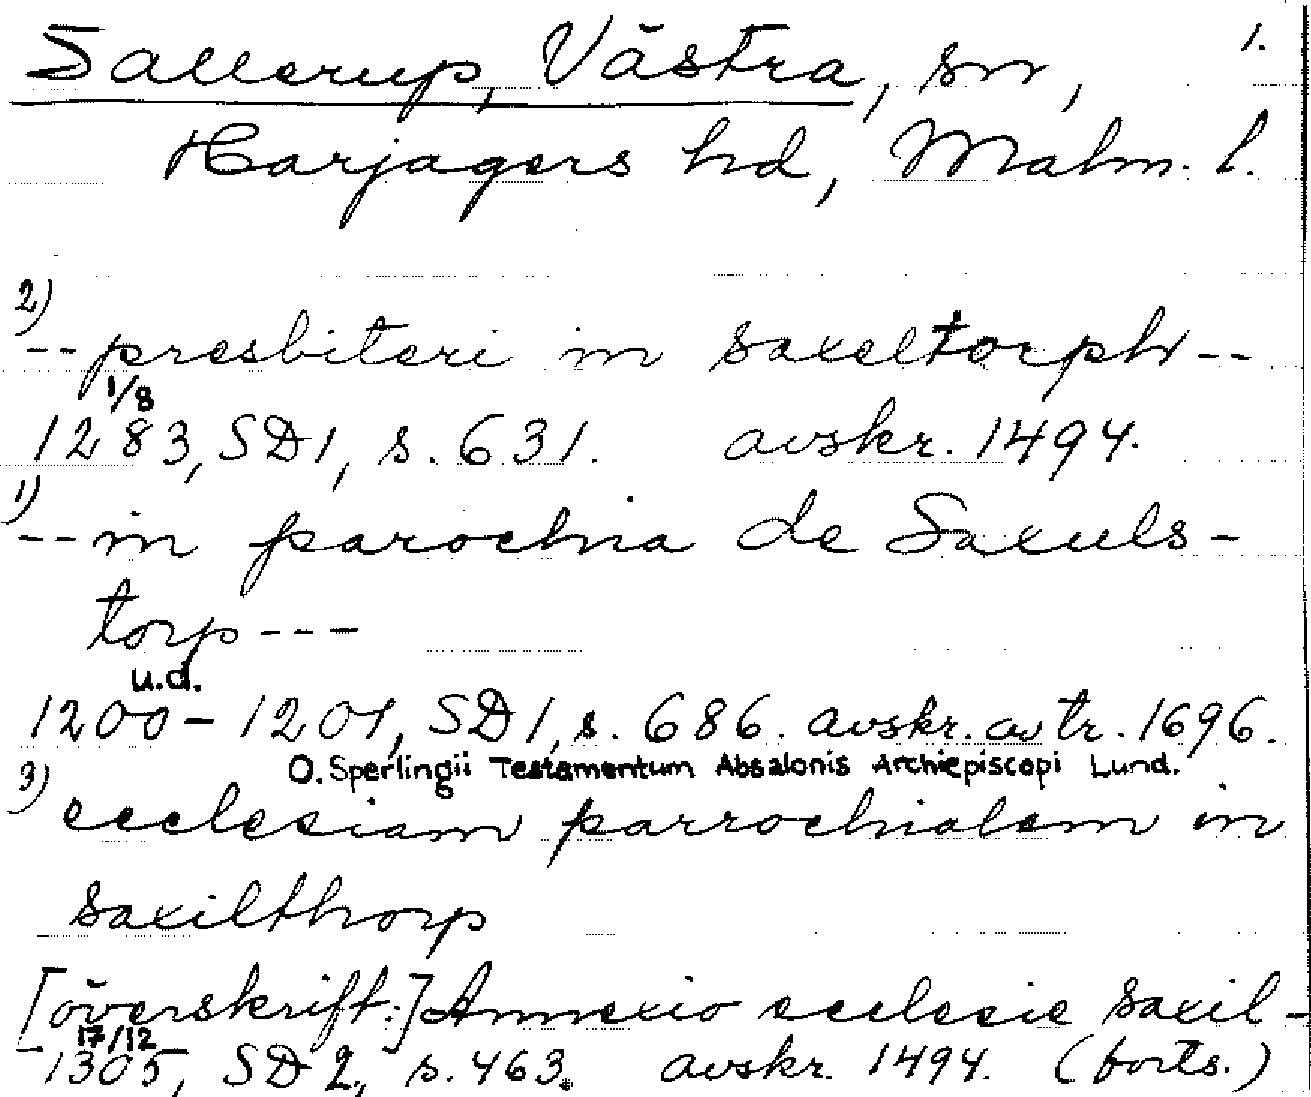 Sallerup, Västra, sn, 1.
Harjagers hd, Malm. l.
2)
-- presbiteri in saxeltorph --
1/8
1283, SD 1, s. 631. avskr. 1494.
1)
-- in parochia de Saxuls-
torp ---
u.d.
1200 - 1201, SD 1, s. 686. avskr. av tr. 1696.
O. Sperlingii Testamentum Absalonis Archiepiscopi Lund.
3)
ecclesiam parrochialem in
saxilthorp
[överskrift:] Annexio ecclesie saxil-
17/12
1305, SD 2, s. 463. avskr. 1494. (forts.)